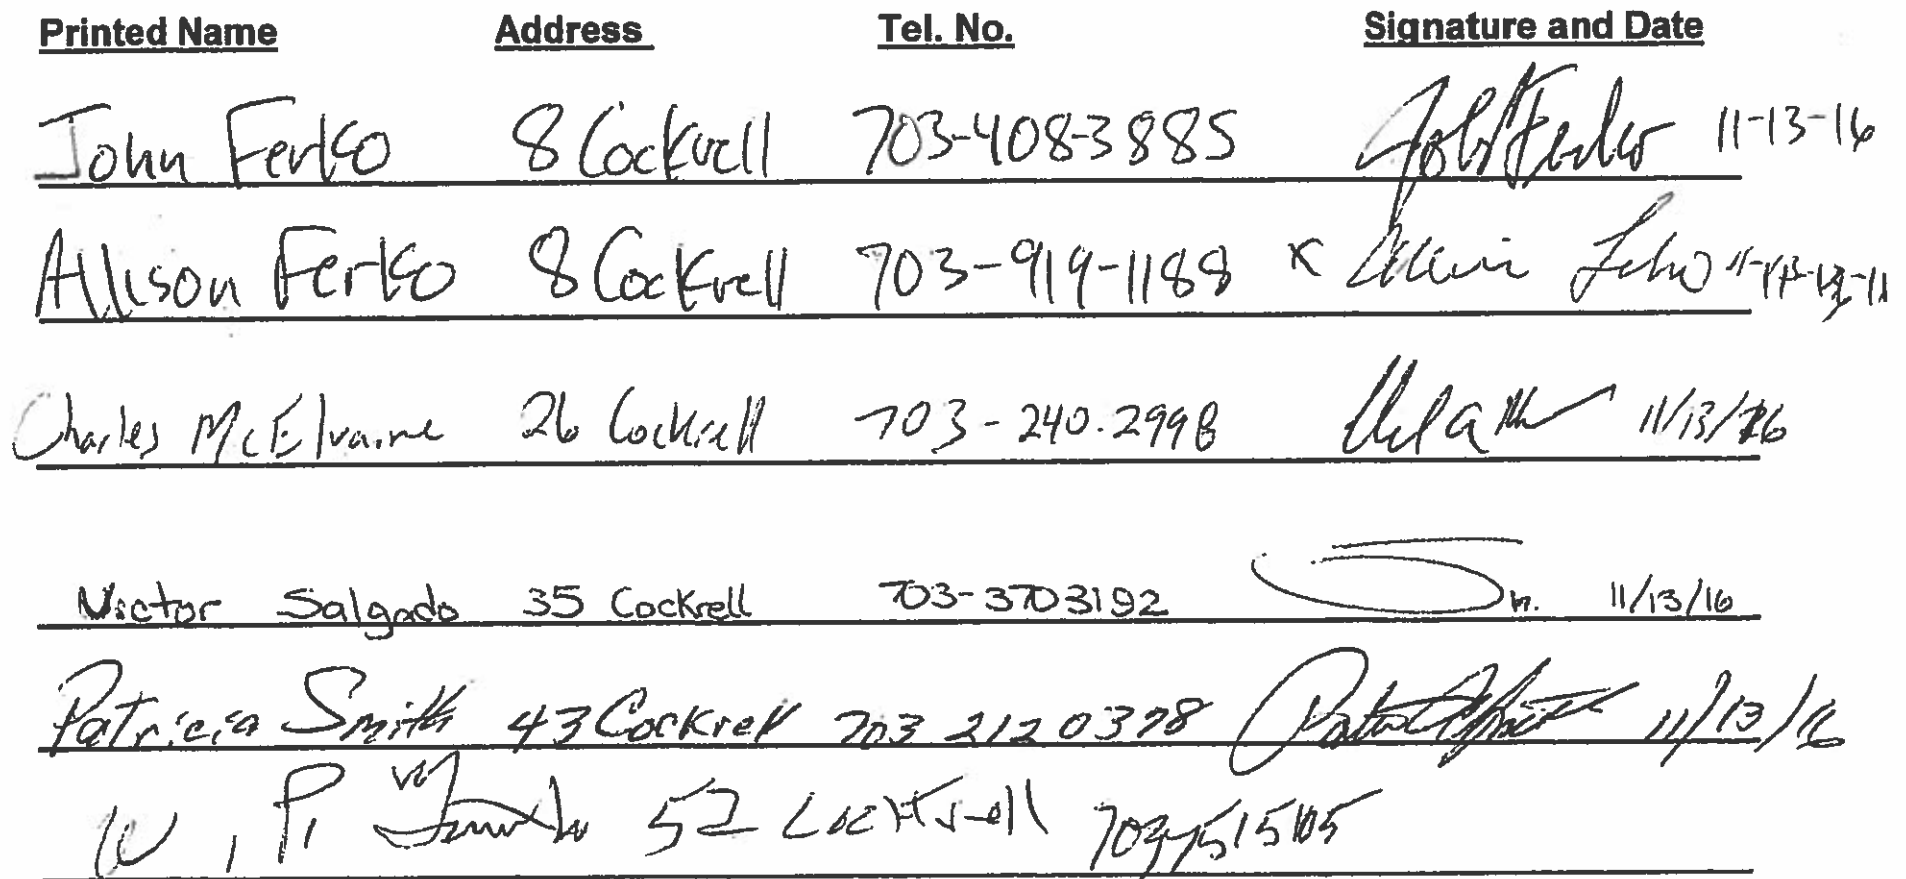 Printed Name Address Tel. No. Signature and Date
John Ferko 8 Cockrell 703-408-3885 John Ferko 11-13-16
Allison Ferko 8 Cockrell 703-919-1188 x
Charles McElvaine 26 Cockrell 703-240.2998 11/13/16
Victor Salgado 35 Cockrell 703-3703192 11/13/16
Patricia Smith 43 Cockrell 703 212 0378 11/13/16
W, P, 52 Cockrell